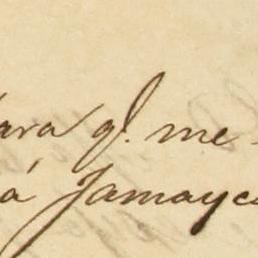 para q.^e me
á Jamayca